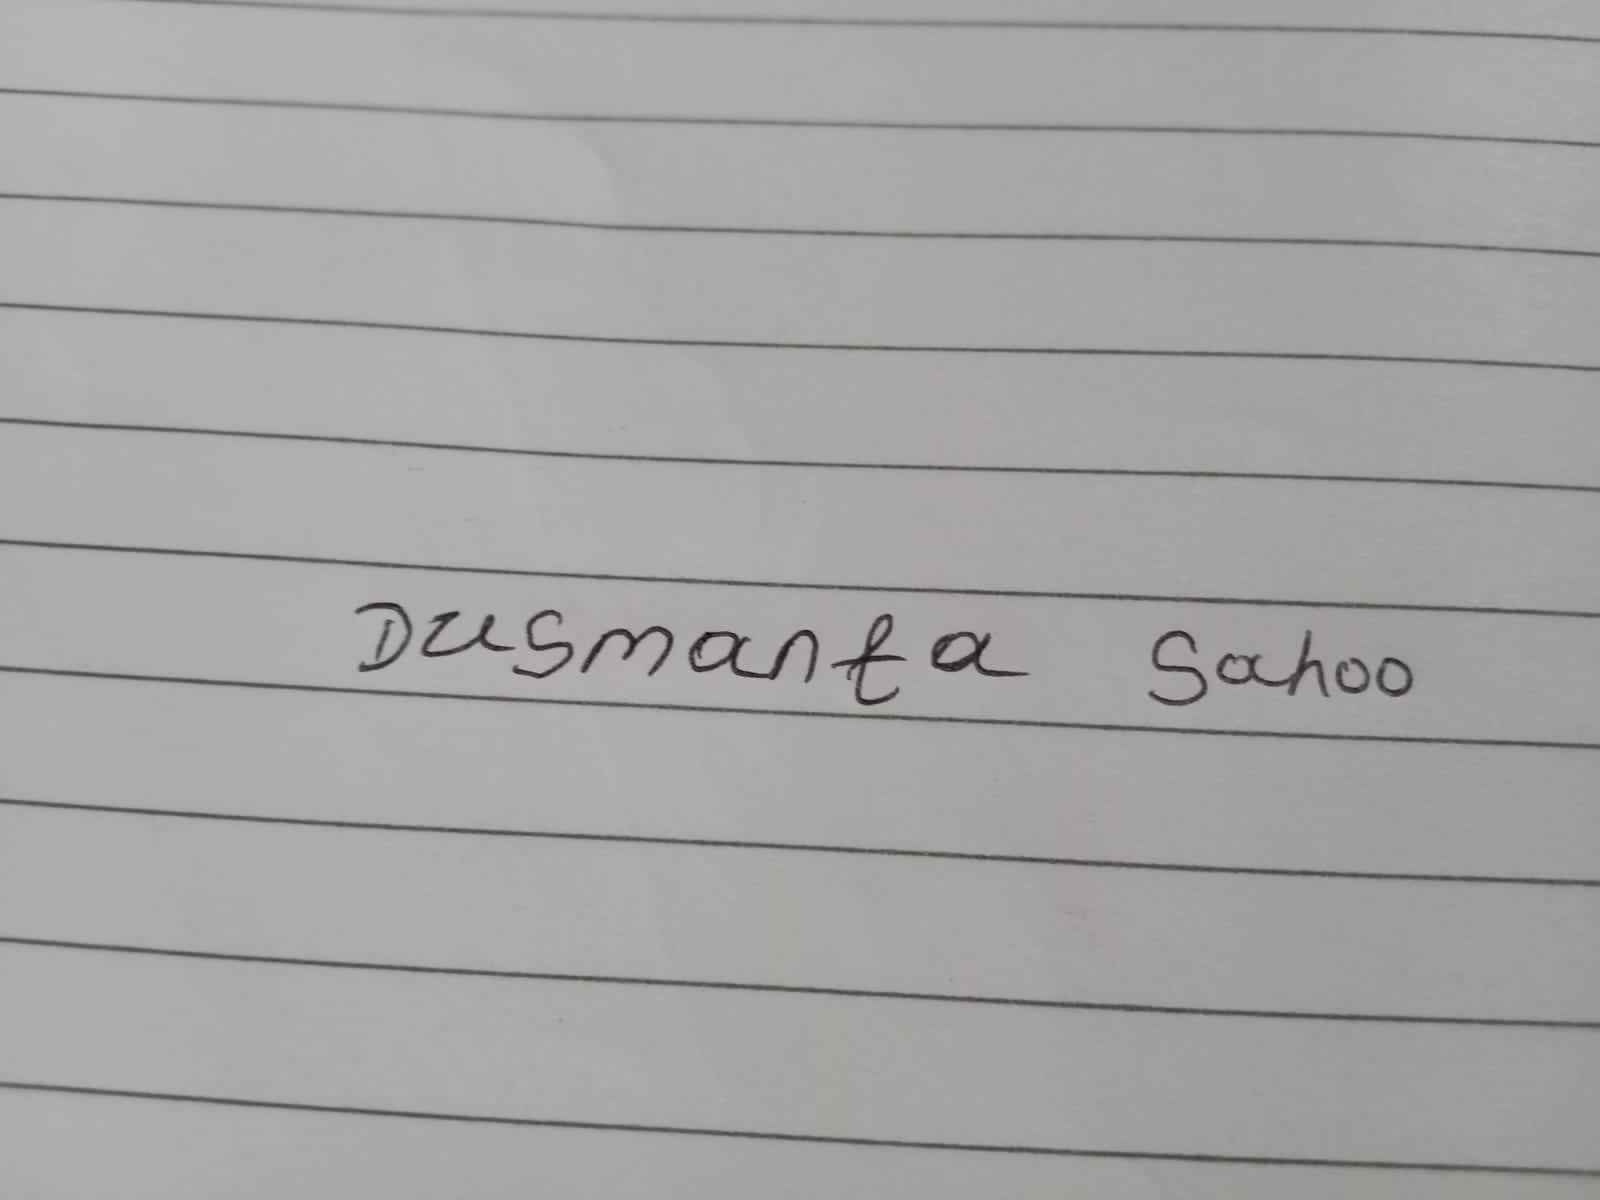 Dusmanta Sahoo